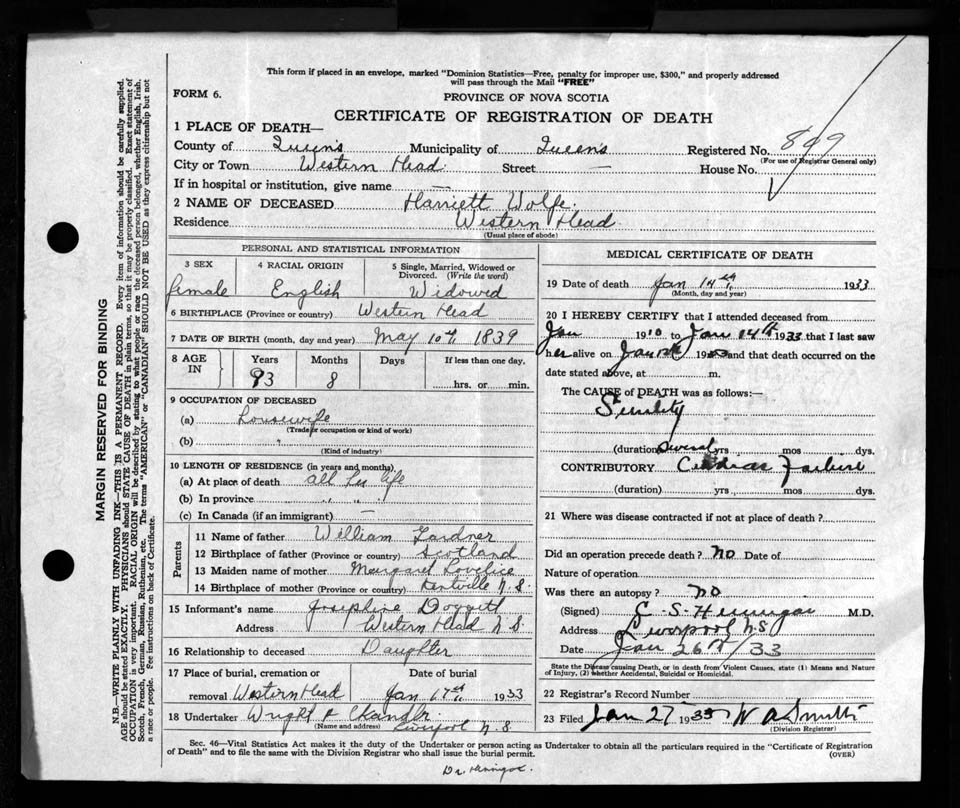 This form if placed in an envelope, marked "Dominion Statistics—Free, penalty for improper use, $300," and properly addressed
will pass through the Mail "FREE"
FORM 6.
PROVINCE OF NOVA SCOTIA
CERTIFICATE OF REGISTRATION OF DEATH
1 PLACE OF DEATH—
County of Queen's Municipality of Queens Registered No. 849
(For use of Registrar General only)
City or Town Western Head Street — House No.
If in hospital or institution, give name —
2 NAME OF DECEASED Harriett Wolfe
Residence Western Head
(Usual place of abode)
PERSONAL AND STATISTICAL INFORMATION
3 SEX 4 RACIAL ORIGIN 5 Single, Married, Widowed or
Divorced. (Write the word)
female English Widowed
6 BIRTHPLACE (Province or country) Western Head
7 DATE OF BIRTH (month, day and year) May 10th 1839
8 AGE IN Years Months Days If less than one day.
93 8 hrs. or min.
9 OCCUPATION OF DECEASED
(a) Housewife
(Trade or occupation or kind of work)
(b) "
(Kind of industry)
10 LENGTH OF RESIDENCE (in years and months).
(a) At place of death all her life
(b) In province " " "
(c) In Canada (if an immigrant) —
Parents
11 Name of father William Gardner
12 Birthplace of father (Province or country) Scotland
13 Maiden name of mother Margaret Lovelice
14 Birthplace of mother (Province or country) Kentville N.S.
15 Informant's name Josephine Doggett
Address Western Head N.S.
16 Relationship to deceased Daughter
17 Place of burial, cremation or Date of burial
removal Western Head Jan 17th 1933
18 Undertaker Wright & Chandler
(Name and address) Liverpool N.S.
MEDICAL CERTIFICATE OF DEATH
19 Date of death Jan 14th 1933
(Month, day and year)
20 I HEREBY CERTIFY that I attended deceased from
Jan 1910 to Jan 14th 1933 that I last saw
her alive on Jan and that death occurred on
date stated above, at m.
The CAUSE of DEATH was as follows:—
Senility
(duration) Several yrs. mos. dys.
CONTRIBUTORY Cardiac Failure
(duration) yrs. mos. dys.
21 Where was disease contracted if not at place of death?
Did an operation precede death? No Date of
Nature of operation
Was there an autopsy? No
(Signed) C. S. Hennigar M.D.
Address Liverpool N.S
Date Jan 26th/33
State the Disease causing Death, or in death from Violent Causes, state (1) Means and Nature
of Injury, (2) whether Accidental, Suicidal or Homicidal.
22 Registrar's Record Number
23 Filed Jan 27 1933 W A Smith
(Division Registrar)
Sec. 46—Vital Statistics Act makes it the duty of the Undertaker or person acting as Undertaker to obtain all the particulars required in the "Certificate of Registration
of Death" and to file the same with the Division Registrar who shall issue the burial permit.
(OVER)
Dr. Hennigar.
MARGIN RESERVED FOR BINDING
N.B.—WRITE PLAINLY WITH UNFADING INK—THIS IS A PERMANENT RECORD. Every item of information should be carefully supplied.
AGE should be stated EXACTLY. PHYSICIANS should STATE CAUSE OF DEATH in plain terms, so that it may be properly classified. Exact statement of
OCCUPATION is very important. RACIAL ORIGIN will be described by stating to what people or race the deceased person belonged, whether English, Irish,
Scotch, French, German, Russian, Ruthenian, etc. The terms "AMERICAN" or "CANADIAN" SHOULD NOT BE USED as they express citizenship but not
a race or people. See instructions on back of Certificate.